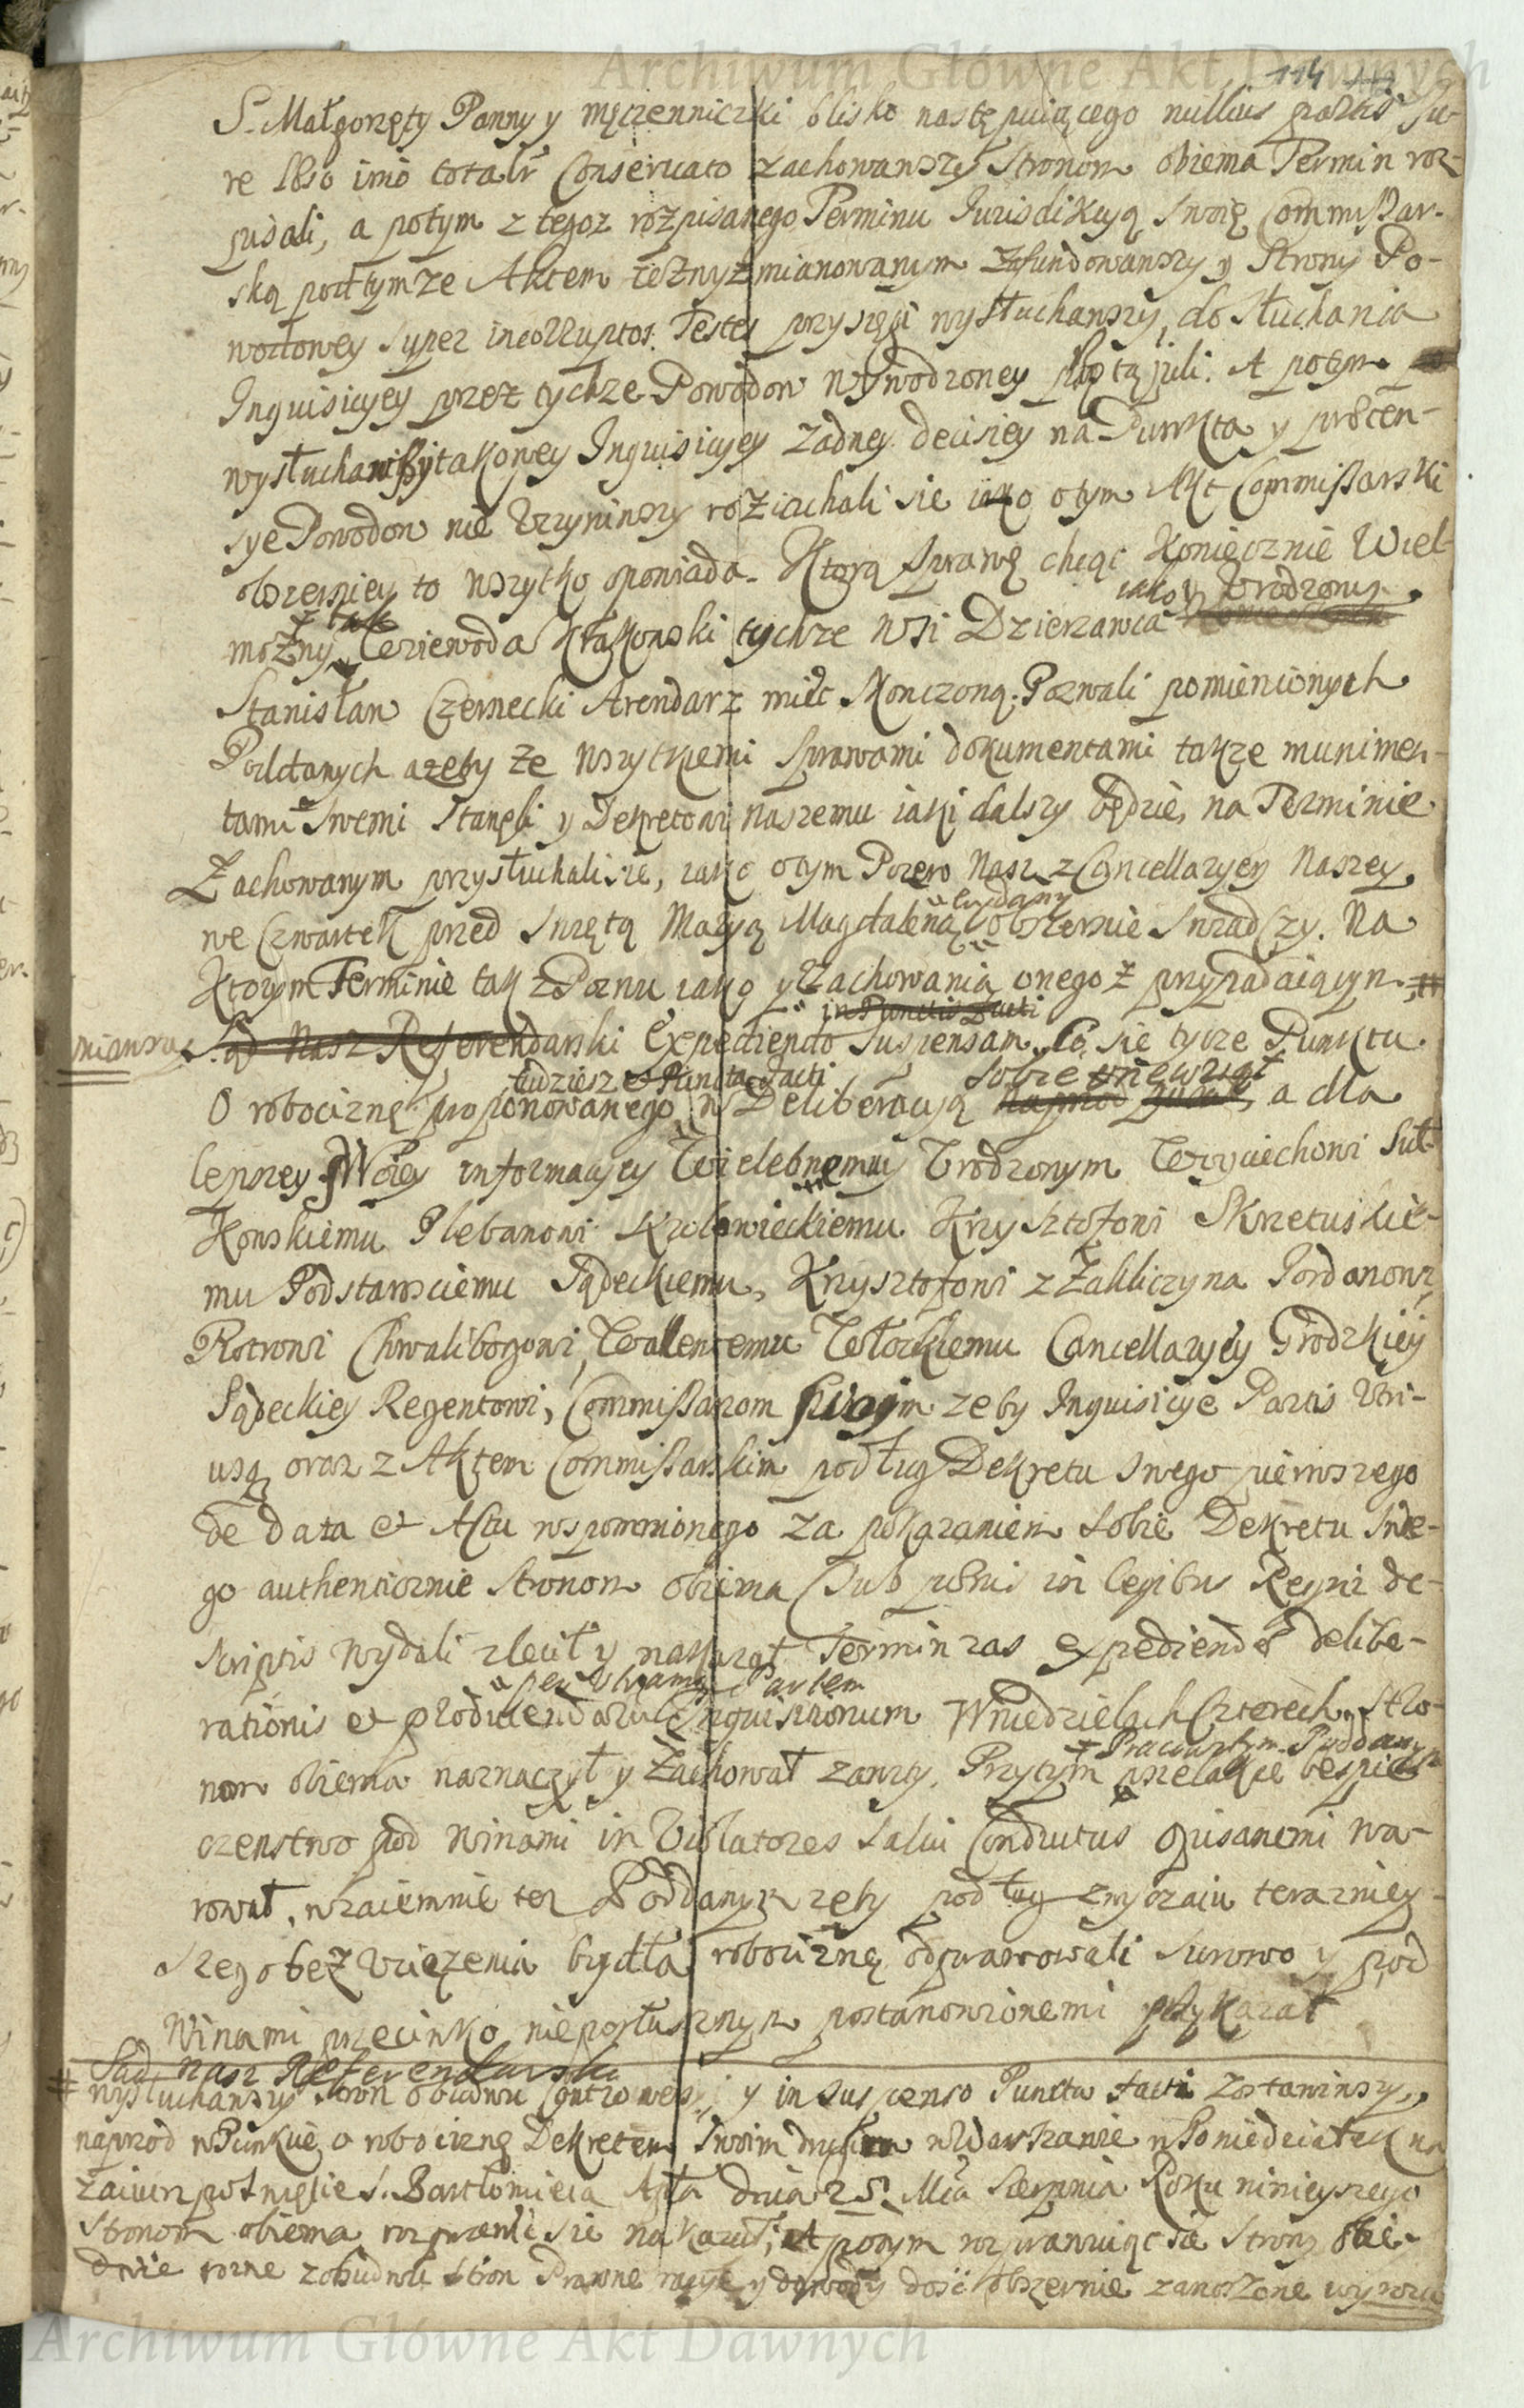 Archiwum Główne Akt Dawnych
114
S. Małgorzęty Panny y męczenniczki blisko następuiącego nullius partis Ju-
re laeso imo totalr Conseruato zachowawszy Stronom obiema Termin roz-
pisali, a potym z tegoz rozpisanego Terminu Jurisdikcyą Swoię Commissar-
ską pod tymze Aktem zwyz mianowanym zafundowawszy y Strony Po-
wodowey super incorruptos Testes przysięgi wysłuchawszy, do słuchania
Inquisicyey przez tychze Powodow wywodzoney przystąpili. A potym
wysłuchawszy takowey Inquisicyey zadney decisiey na Punkta y praeten-
sye Powodow nie Uczyniwszy roziachali sie iako o tym Akt Commissarski
obszerniey to wszytko opowiada. Ktorą Sprawę chcąc Koniecznie Wiel-
iako y Urodzony
mozny Woiewoda Krakowski tychze Wsi Dzierzawca
Stanisław Czernecki Arendarz mieć Skonczoną. Pozwali pomienionych
Poddanych azeby ze wszytkiemi Sprawami dokumentami takze munimen-
tami Swemi Stanęli y Dekretowi naszemu iaki dalszy będzie, na Terminie
Zachowanym przysłuchali sie, iako o tym Pozew Nasz z Cancellaryey Naszey
wydany
we Czwartek przed Swiętą Maryą Magdaleną obszernie Swiadczy. Na
Ktorym Terminie tak z Pozwu iako y Zachowania onegoz przypadaiącym #
in Punctis Facti
Sąd Nasz Referendarski Expediendo Suspensam. Co się tycze Punktu
tudziesz Puncta Facti sobie wziewszy
O robociznę proponowanego, w Deliberacyą a dla
lepszey Swoiey informacyey Wielebnemu Urodzonym Woyciechowi Sut-
kowskiemu Plebanowi Krzysztofowi Skrzetuskie-
mu Podstarosciemu Sądeckiemu, Krzysztofowi z Zakliczyna Jordanowi,
Piotrowi Chwalibogowi, Wallentemu Wołockiemu Cancellaryey Grodzkiey
Sądeckiey Regentowi, Commissarzom Swoim zeby Inquisicye Partis Utri-
usq oraz z Aktem Commissarskim podług Dekretu Swego pierwszego
de data et Actu wspomnionego za pokazaniem Sobie Dekretu Swe-
go authenticznie Stronom obiema sub poenis in legibus Regni de-
scriptis wydali zlecił y nakazał Termin zas expediendae delibe-
per Utramq Partem
rationis et producendarum Inquisitionum W niedzielach Czterech Stro-
Pracowitym Poddanym
nom obiema naznaczył y Zachował zawity. Przytym wszelakie bespie-
czenstwo pod winami in Violatores Salui Conductus opisanemi wa-
rował, wzaiemnie tez Poddanym zeby podług zwyczaiu terazniey-
szego bez Uciązenia bydła robociznę odprawowali surowo y pod
Winami przeciwko nieposłusznym postanowionemi przykazał
Sąd nasz Referendarski
# wysłuchawszy Stron obudwu Controwersyi y in suspenso Puncta facti zostawiwszy,
naprzod w Punkcie o robociznę Dekretem Swoim w Warszawie w Poniedziałek na
zaiutrz po Swięcie S. Bartłomieia Apła dnia 25 Mca Sierpnia Roku ninieyszego
Stronom obiema rozprawić sie nakazał, A potym rozprawuiąc sie Strony
rozne z obudwu Stron Prawne racye y dowody dość obszernie zanoszone
Archiwum Główne Akt Dawnych